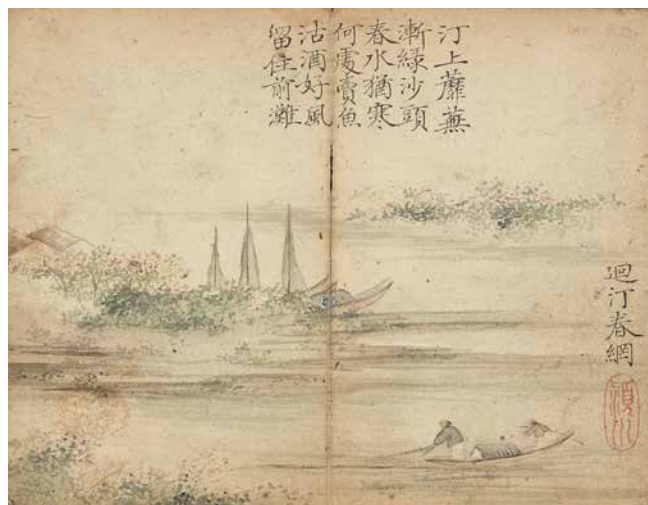 汀上蘼蕪
漸緑沙頭
春水猶寒
何處賣魚
沽酒好風
留住前灘
迴汀春網